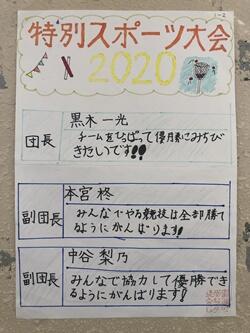 特別スポーツ大会
2020
黒木 一光
団長
チームをひっぱって優勝にみちび
きたいです!!
本宮 柊
副団長
みんなでやる競技は全部勝て
るようにがんばります!
中谷 梨乃
副団長
みんなで協力して優勝でき
るようにがんばります!